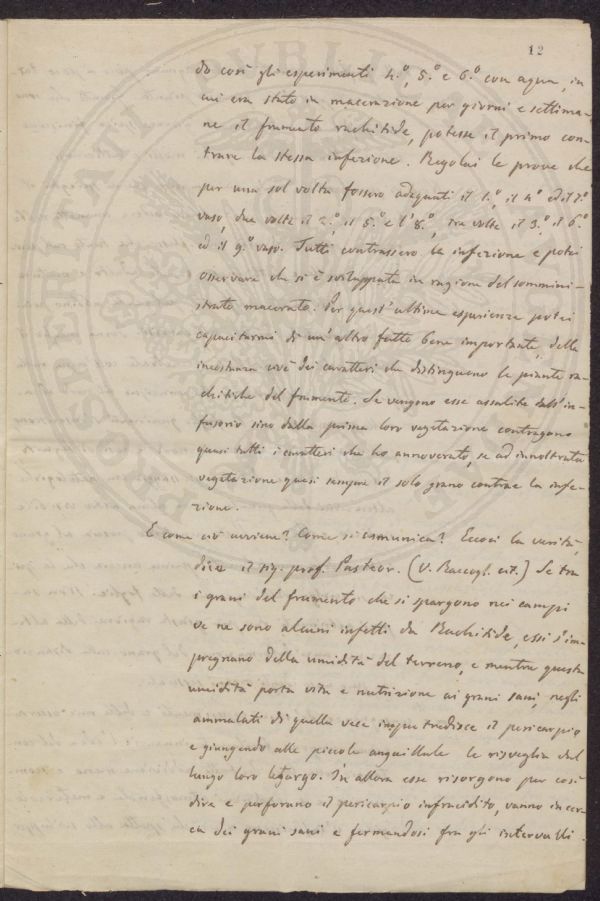 12
do così gli esperimenti 4.º, 5.º e 6.º con aqua, in
cui era stato in macerazione per giorni e settima-
ne il frumento rachitide, potesse il primo con-
trarre la stessa infezione. Regolai le prove che
per una sol volta fossero adaquati il 1.º, il 4º ed il 7.º
vaso, due volte il 2.º, il 5.º e l'8.º, tre volte il 3.º, il 6.º
ed il 9.º vaso. Tutti contrassero la infezione e potei
osservare che si è sviluppata in ragione del sommini-
strato macerato. Per quest'ultima esperienza potei
capacitarmi di un'altro fatto bene importante, della
incostanza cioè dei caratteri che distinguono le piante ra-
chitiche del frumento. Se vengono esse assalite dall'in-
fusorio sino dalla prima loro vegetazione contragono
quasi tutti i caratteri che ho annoverato, se ad innoltrata
vegetazione quasi sempre il solo grano contrae la infe-
zione.
E come ciò avviene? Come si comunica? Eccoci la verità,
dice il sig. prof. Pasteor. (V. Raccogl. cit.) Se tra
i grani del frumento che si spargono nei campi
ve ne sono alcuni infetti da Rachitide, essi s'im-
pregnano della umidità del terreno, e mentre questa
umidità porta vita e nutrizione ai grani sani, negli
ammalati di quella vece imputredisce il pericarpio
e giungendo alle piccole anguillule le risveglia dal
lungo loro letargo. In allora esse risorgono per così
dire e perforano il pericarpio infracidito, vanno in cer-
ca dei grani sani e fermandosi fra gli intervalli